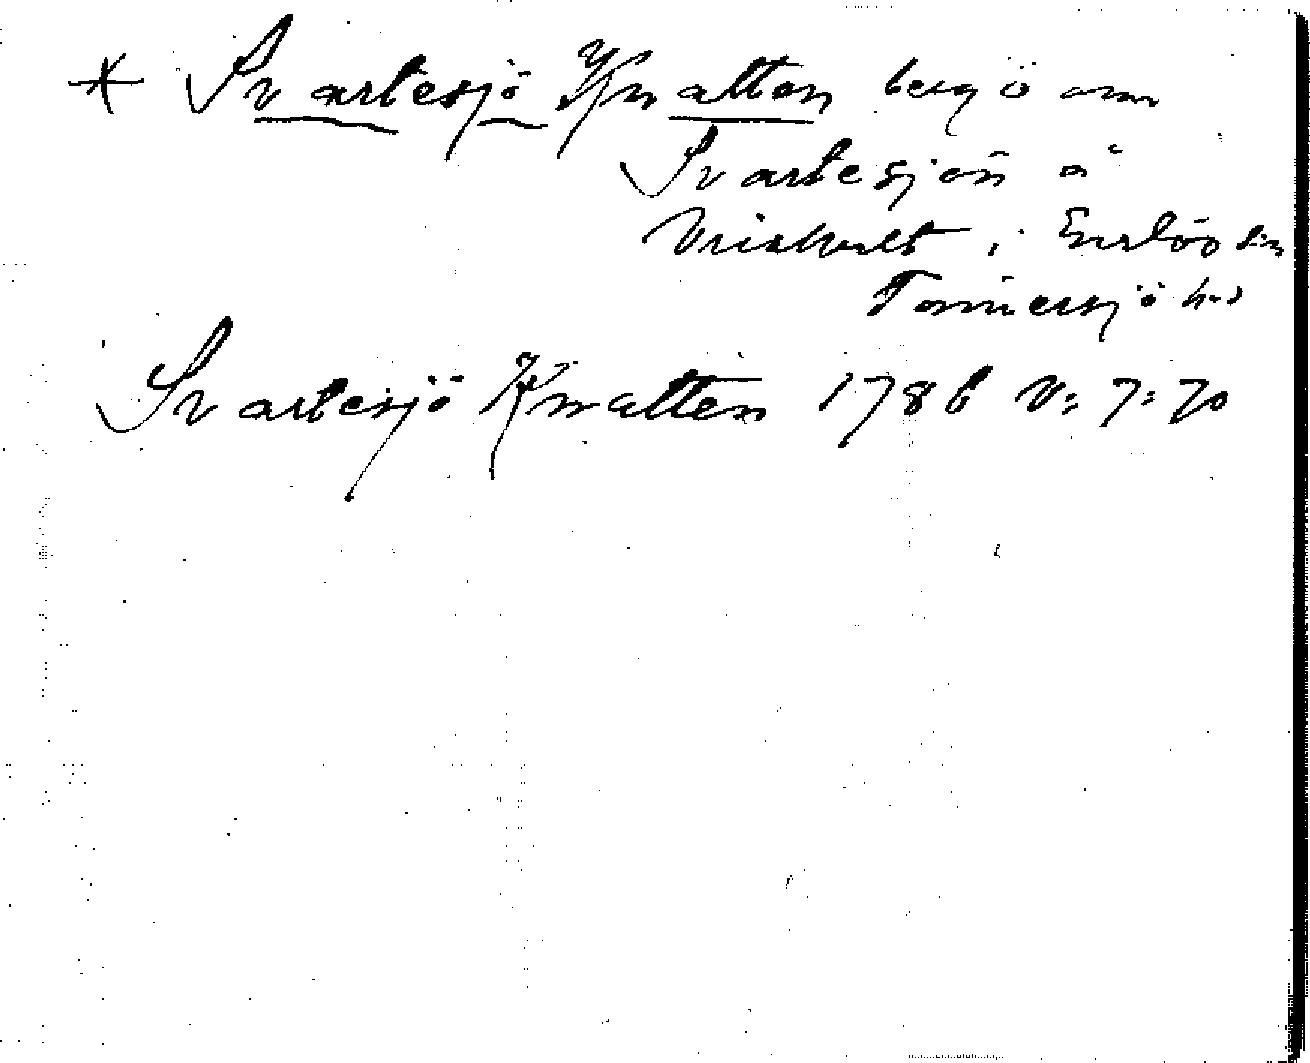 * Svartesjö Knatten berg ö om
Svartesjön å
Vrishult i Enslöv sn
Tönnersjö hd
Svartesjö Knatten 1786 V: 7: 70